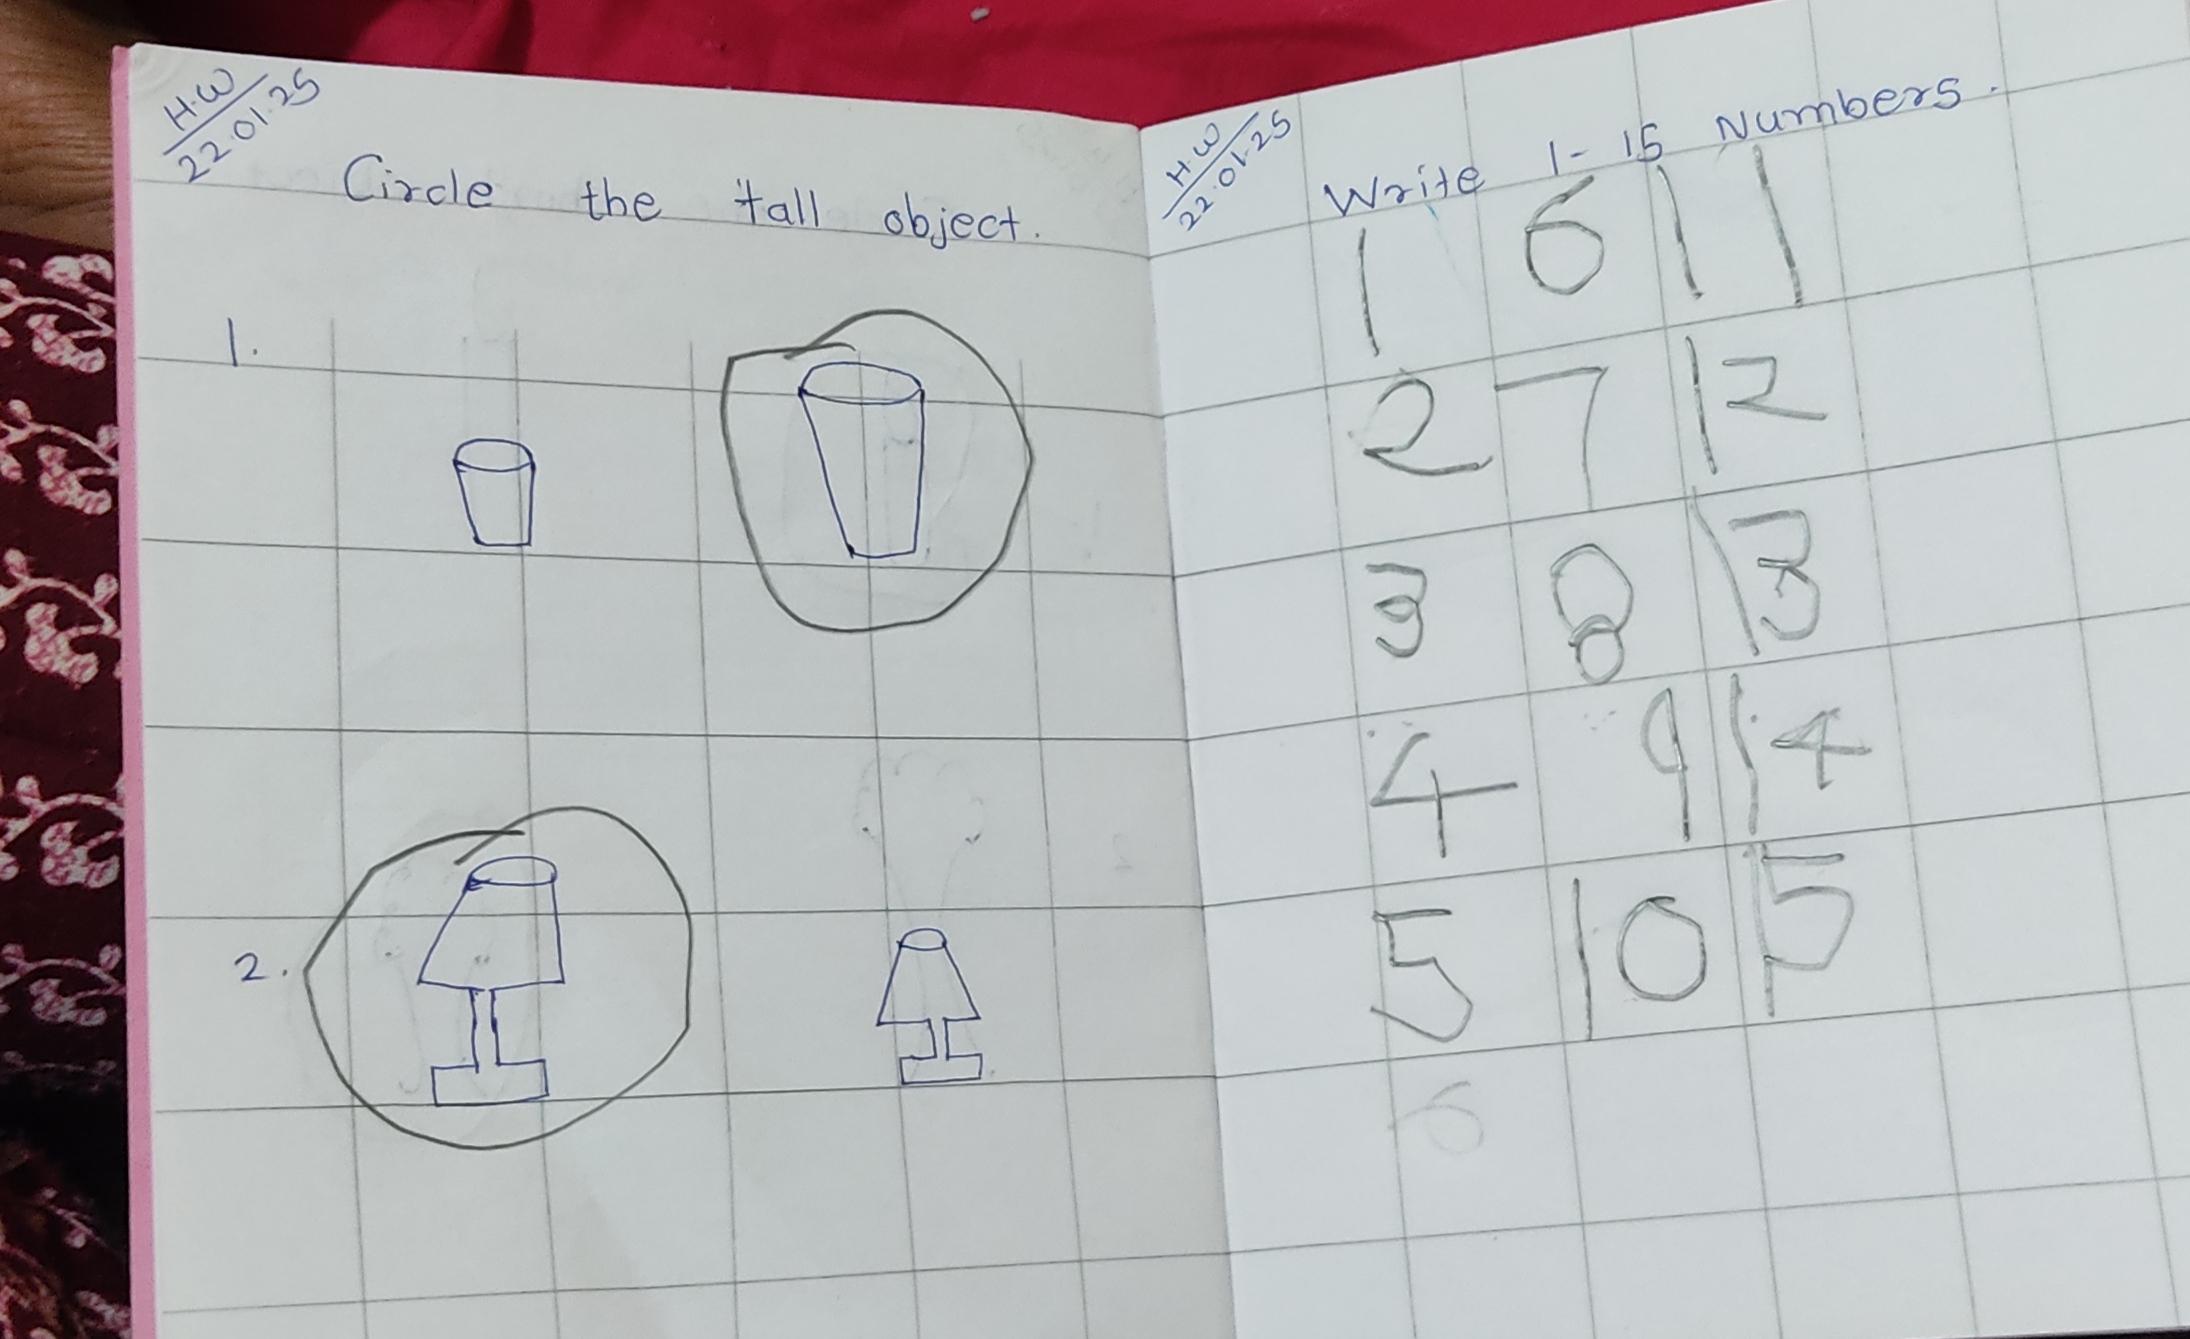 H.W
22.01.25
Circle the tall object.
1.
2.
H.W
22.01.25
Write 1-15 Numbers.
1 6 11
2 7 12
3 8 13
4 9 14
5 10 15
6